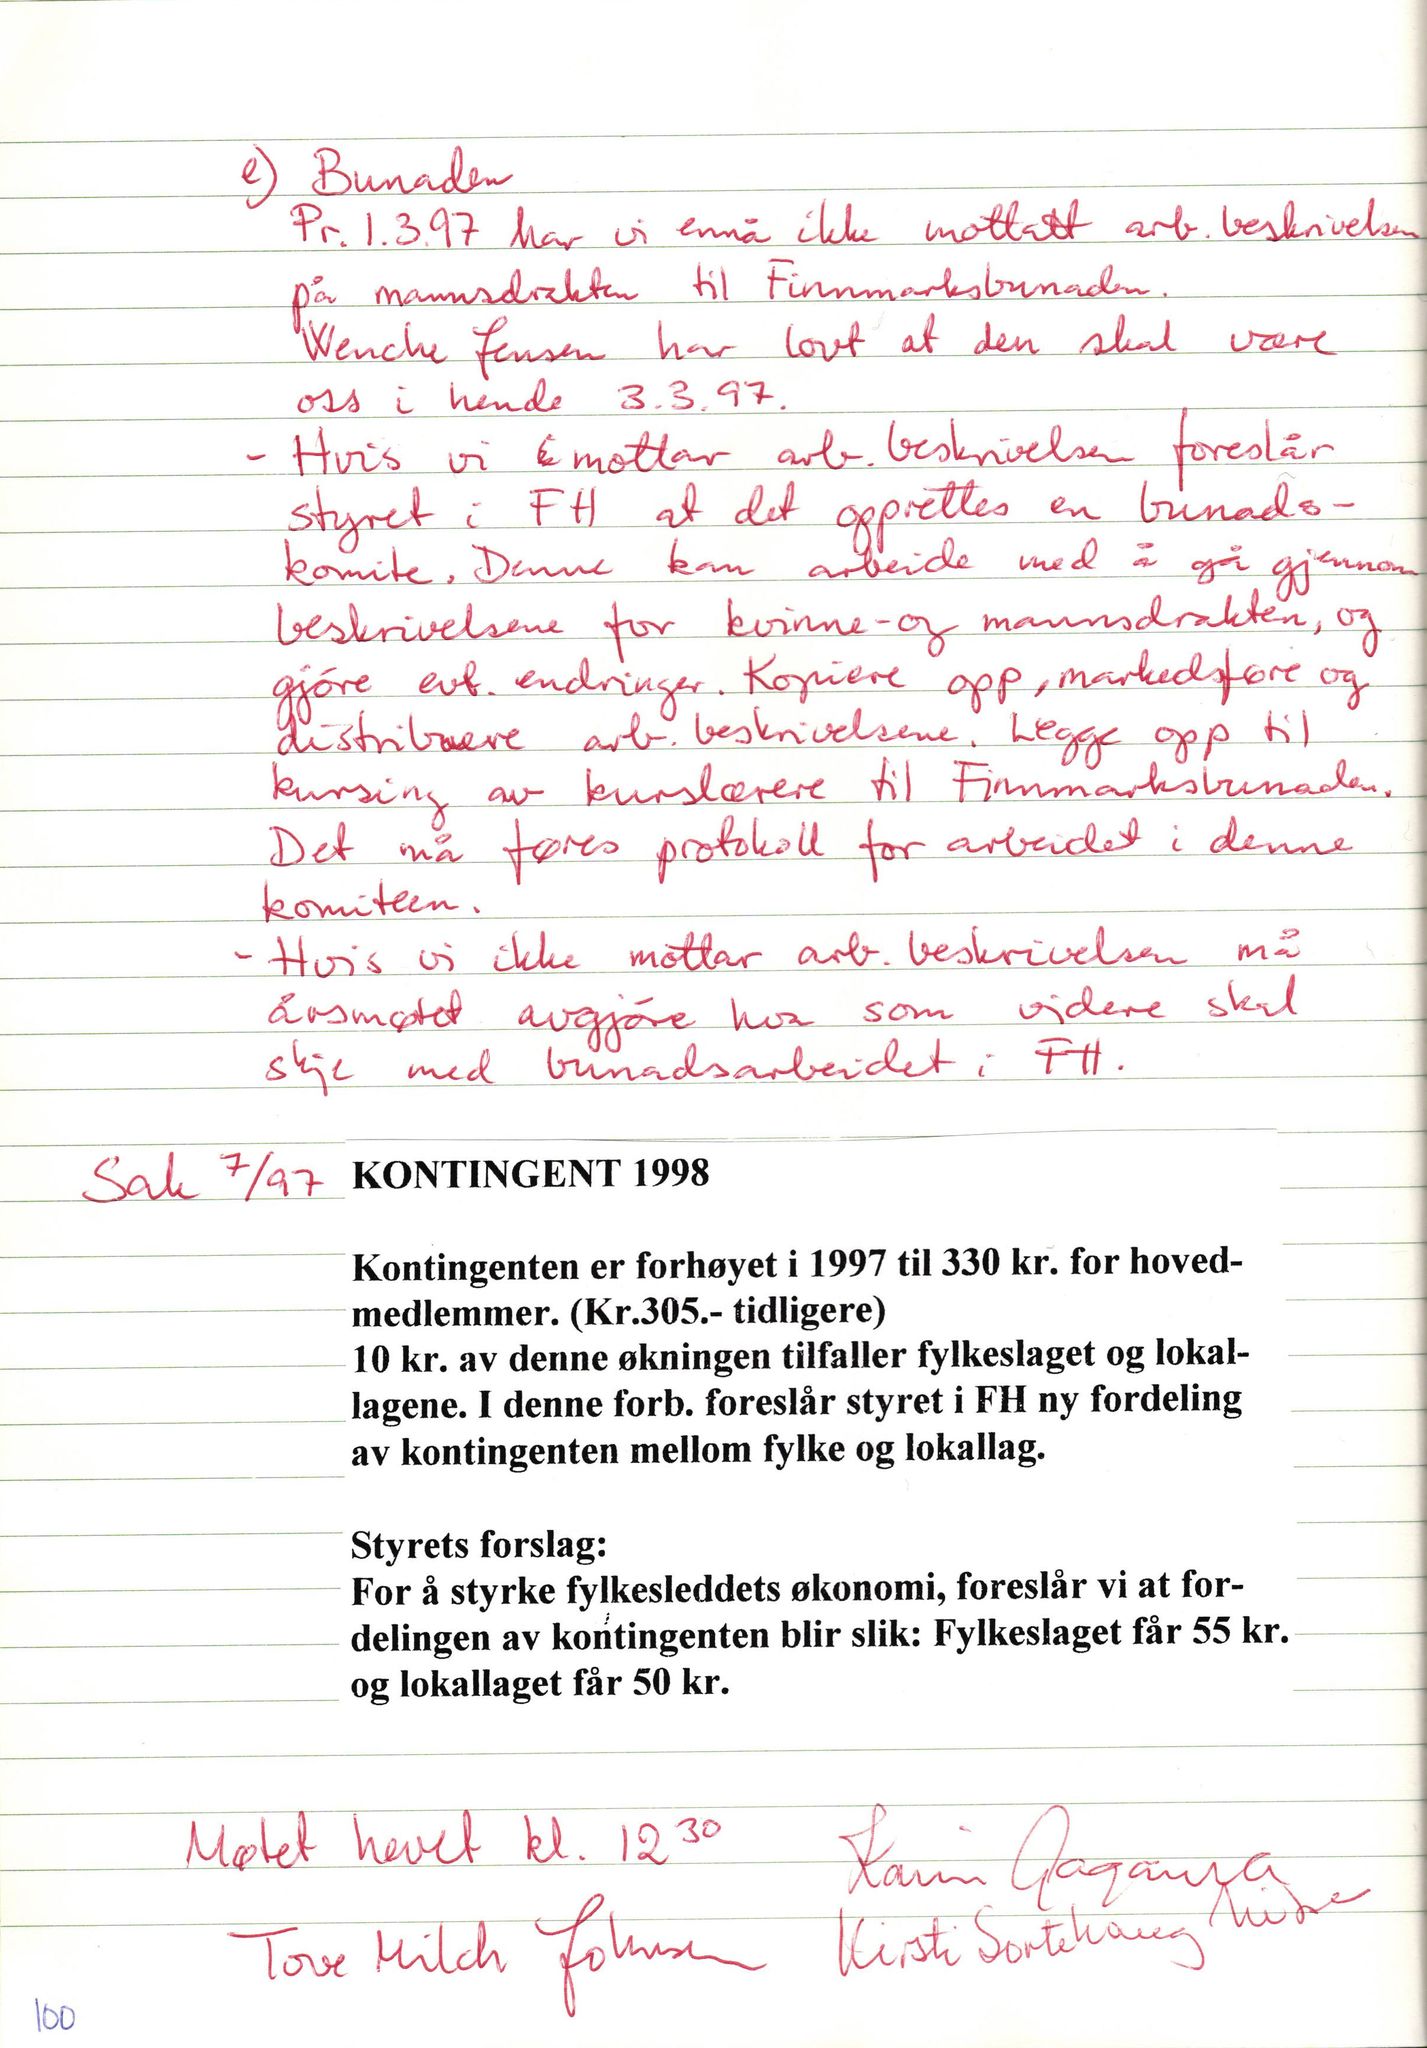 e) Bunaden
Pr. 1.3.97 har vi ennå ikke mottatt arb. beskrivelsen
på mannsdrakten til Finnmarksbunaden.
Wenche Jensen har lovt at den skal være
oss i hende 3.3.97.
- Hvis vi mottar arb. beskrivelsen foreslår
styret i FH at det opprettes en bunads-
komite. Denne kan arbeide med å gå gjennom
beskrivelsene for kvinne- og mannsdrakten, og
gjøre evt. endringer. Kopiere opp, markedsføre og
distribuere arb. beskrivelsene. Legge opp til
kursing av kurslærere til Finnmarksbunaden.
Det må føres protokoll for arbeidet i denne
komiteen.
- Hvis vi ikke mottar arb. beskrivelsen må
årsmøtet avgjøre hva som videre skal
skje med bunadsarbeidet i FH.
Sak 7/97 KONTINGENT 1998
Kontingenten er forhøyet i 1997 til 330 kr. for hoved-
medlemmer. (Kr.305.- tidligere)
10 kr. av denne økningen tilfaller fylkeslaget og lokal-
lagene. I denne forb. foreslår styret i FH ny fordeling
av kontingenten mellom fylke og lokallag.
Styrets forslag:
For å styrke fylkesleddets økonomi, foreslår vi at for-
delingen av kontingenten blir slik: Fylkeslaget får 55 kr.
og lokallaget får 50 kr.
Møtet hevet kl. 12 30
Karin
Tove Milch Johnsen
Kirsti Sortehaug
100